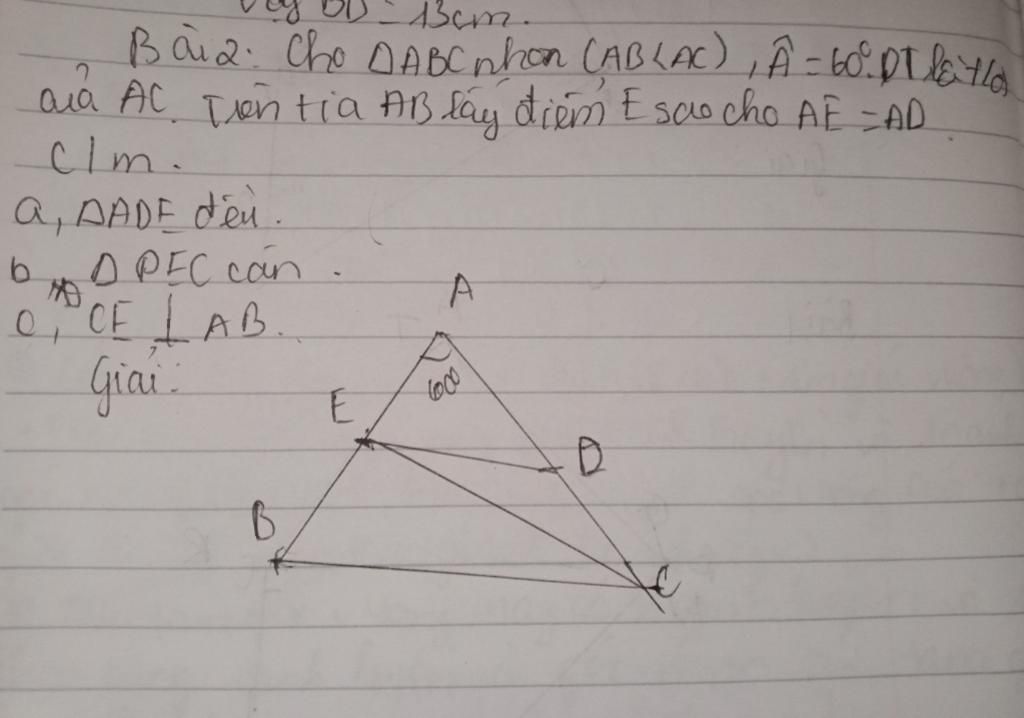 Vậy BD = 13cm.
Bài 2: Cho ΔABC nhọn (AB < AC), Â = 60°. DT là
của AC. Trên tia AB lấy điểm E sao cho AE = AD.
C/m.
a, ΔADE đều.
b, Δ DEC cân.
c, CE ⊥ AB.
Giải:
A
60°
E
D
B
C